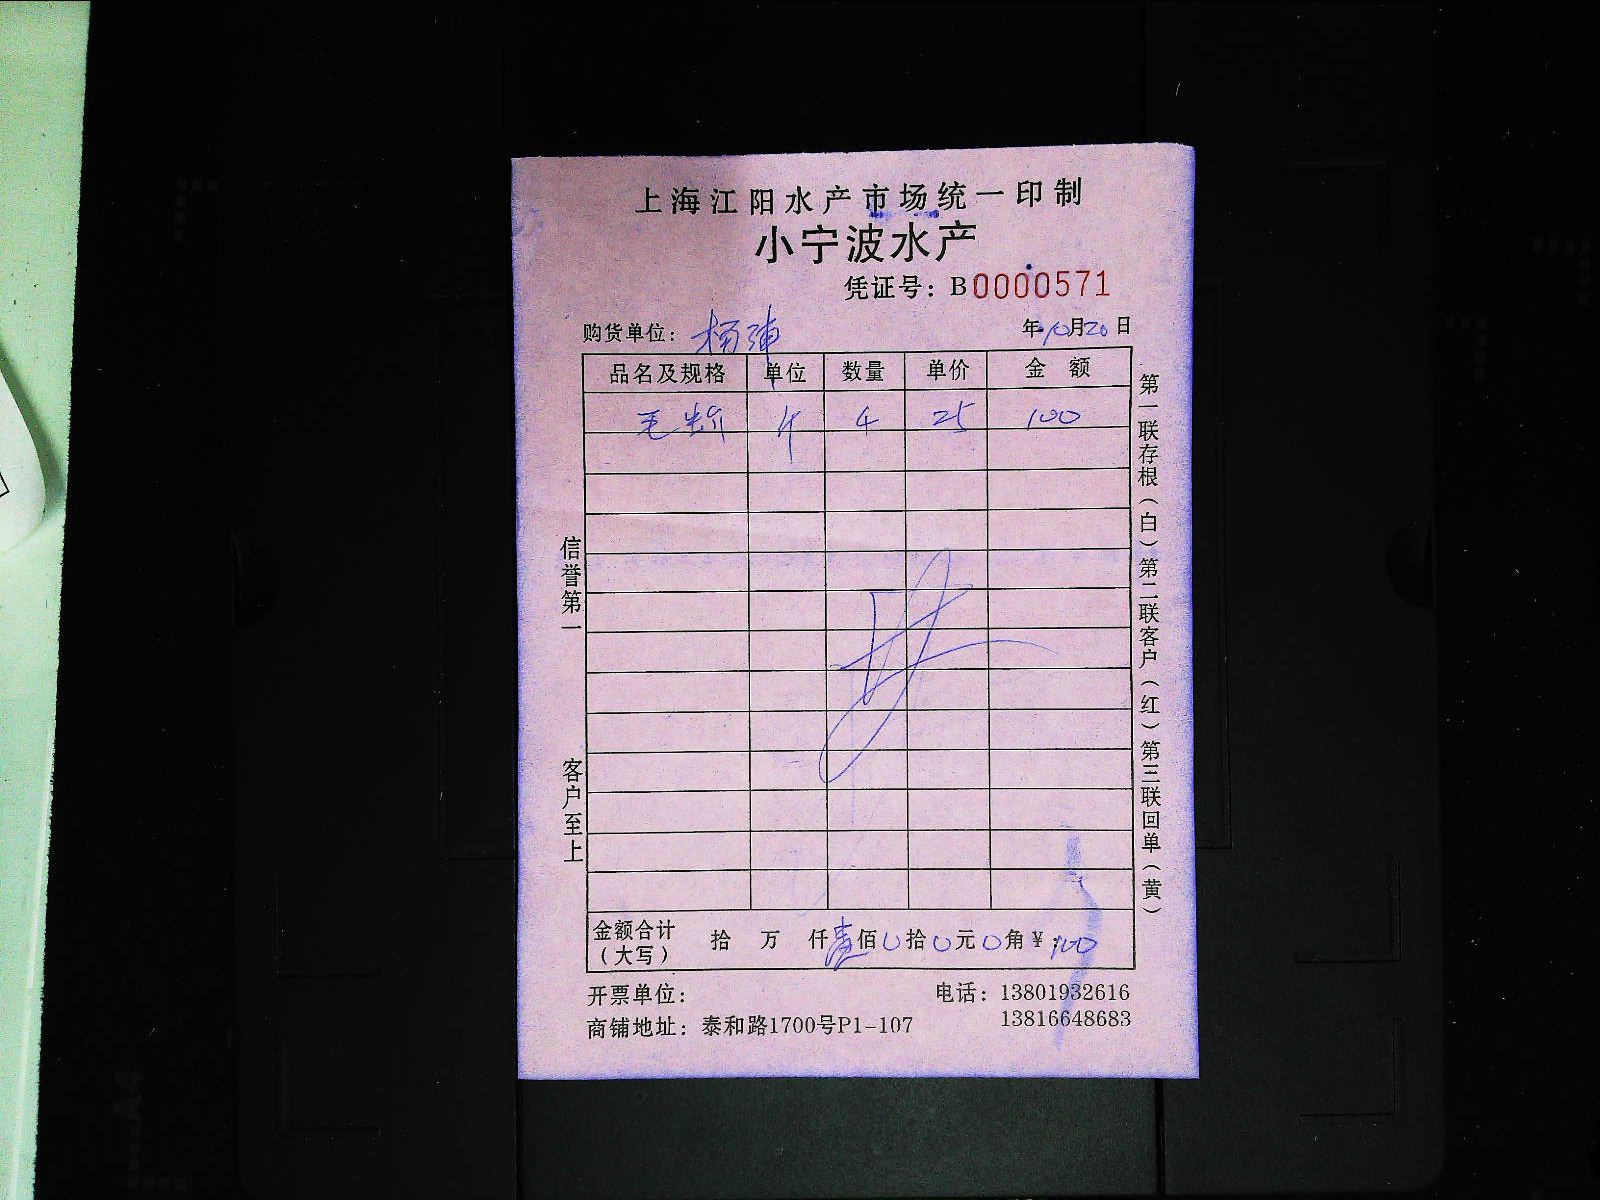 上海江阳水产市场统一印制
小宁波水产
凭证号：B0000571
购货单位：杨浦
年10月20日
品名及规格 单位 数量 单价 金额
毛 斤 4 25 100
信誉第一
客户至上
第一联存根（白）第二联客户（红）第三联回单（黄）
金额合计（大写） 拾 万 仟壹佰0拾0元0角¥：100
开票单位：
电话：13801932616
13816648683
商铺地址：泰和路1700号P1-107